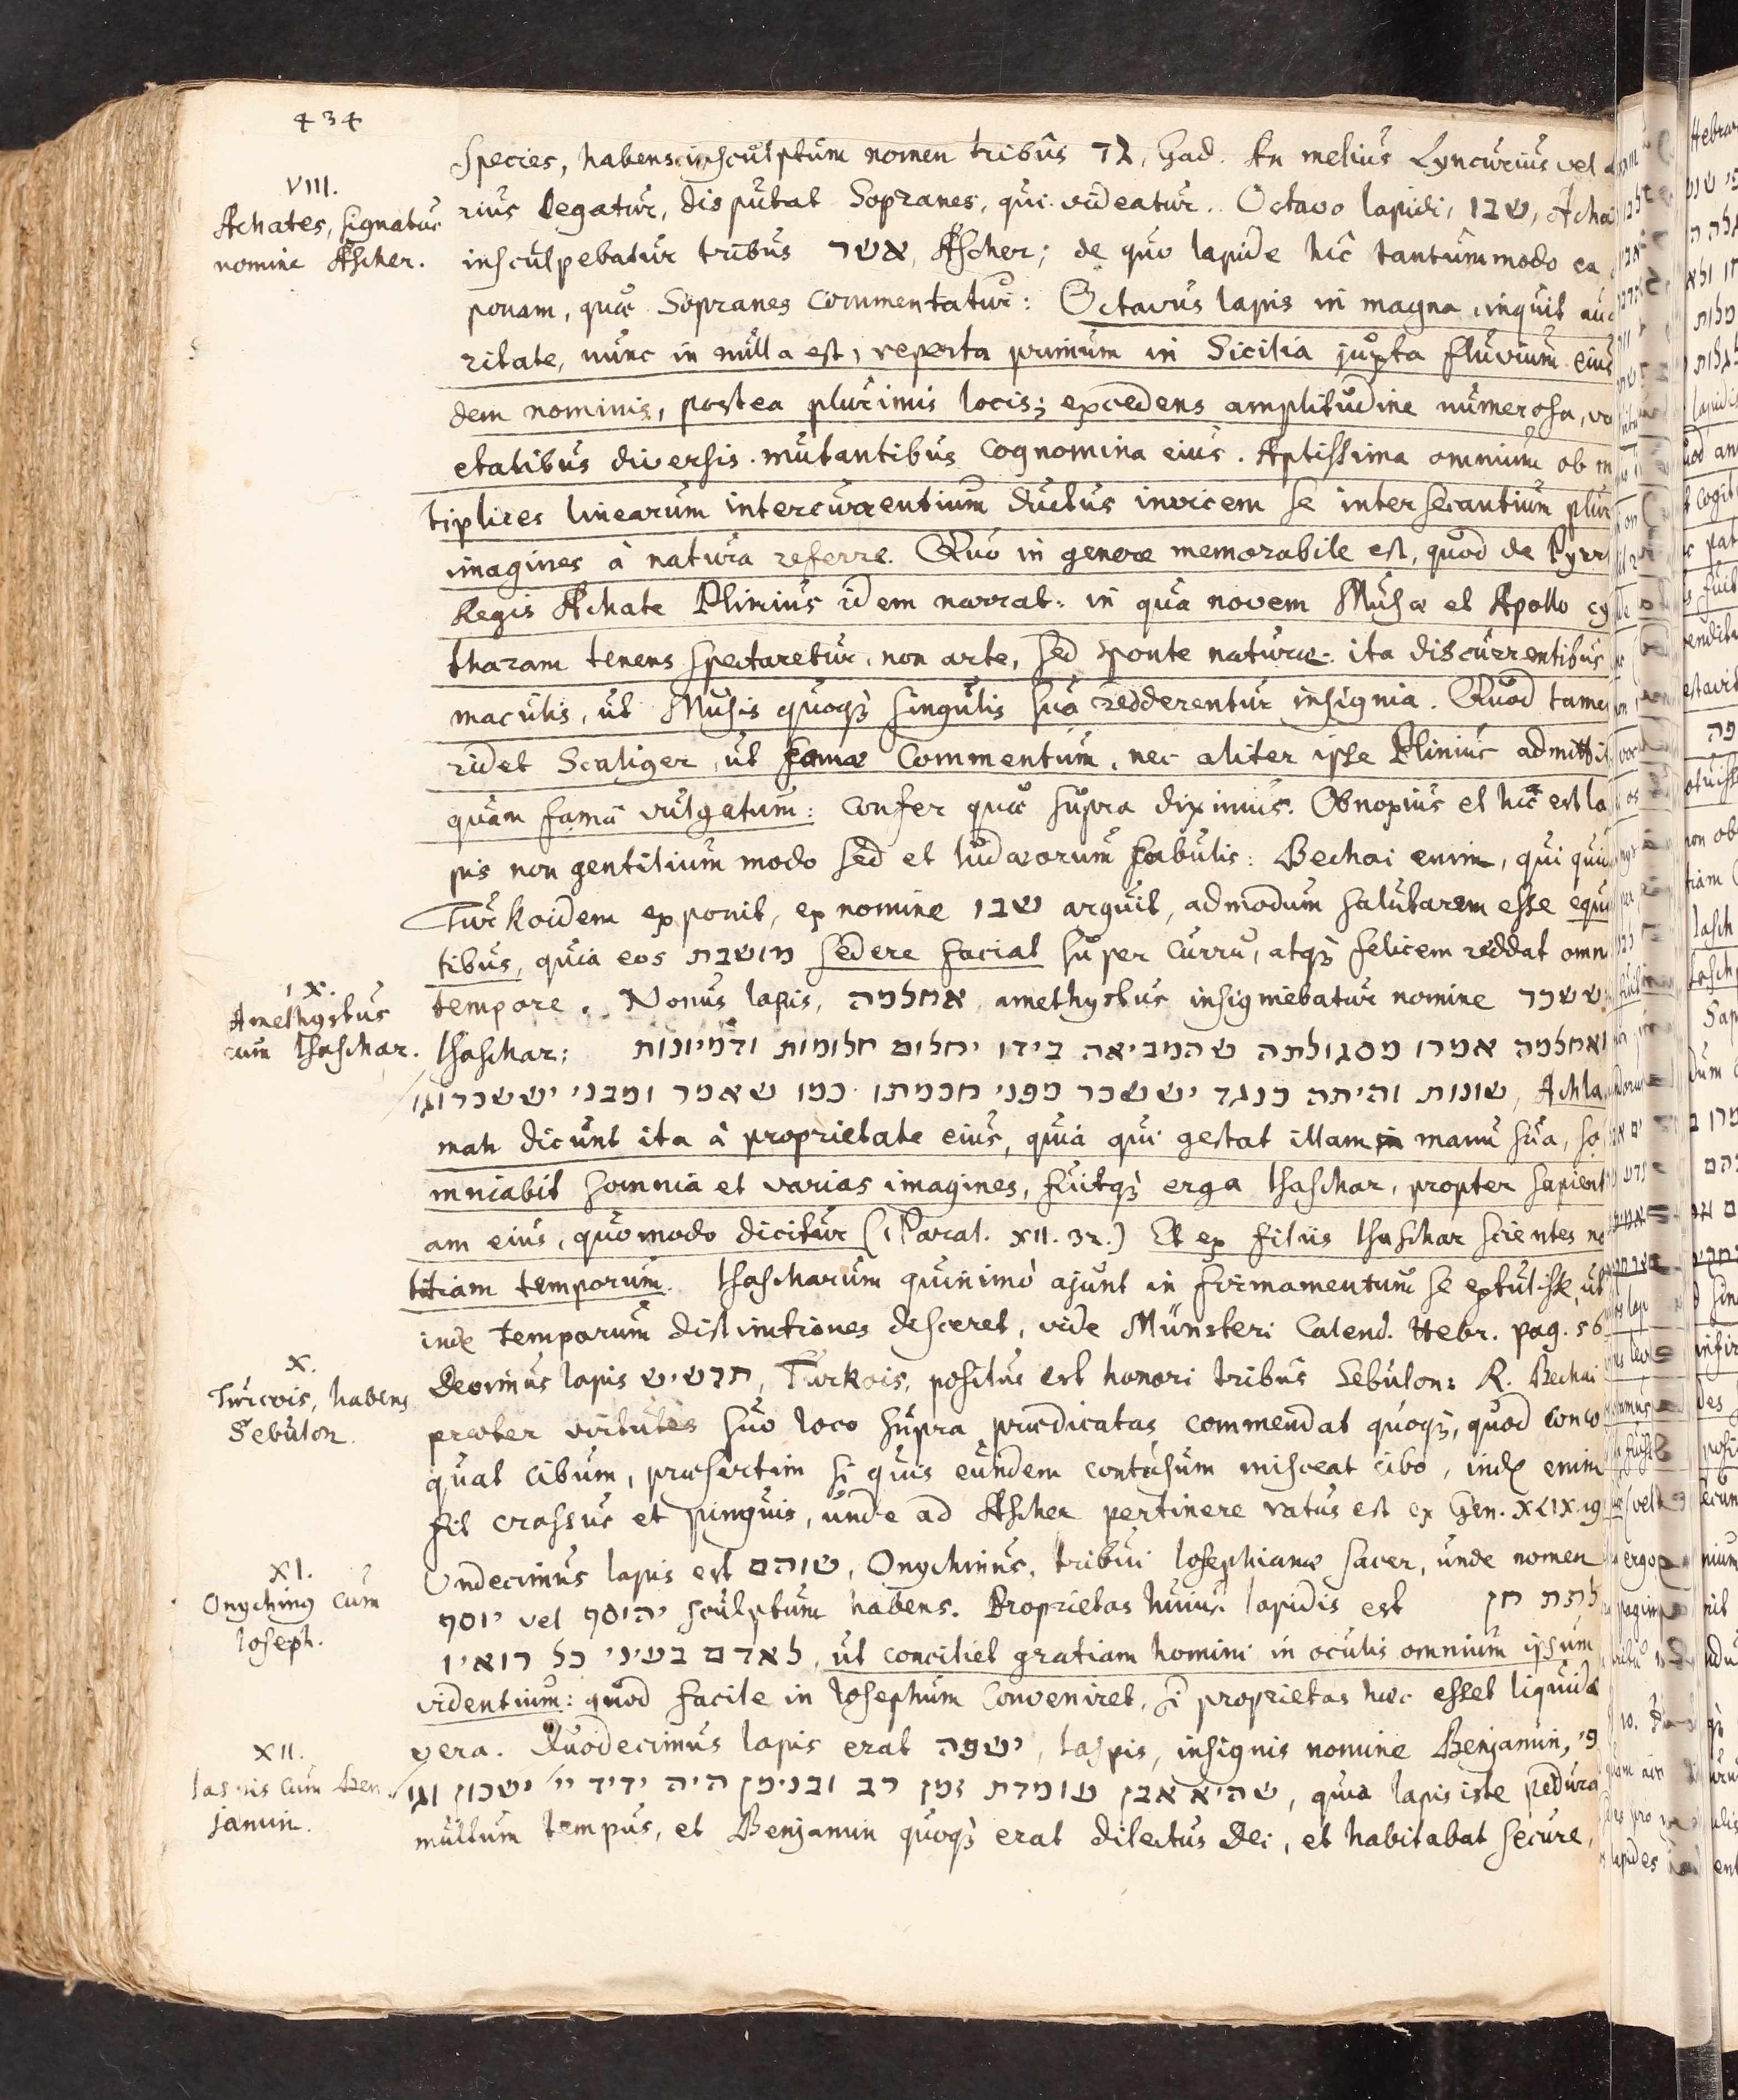 434
Species, habens insculptum nomen tribûs גד, Gad. An melius Lyncurius vel
VIII.
Achates, signatus
nomine Ascher.
rius legatur, disputat Sopranes, qui videatur. Octavo lapidi, שבו, Achat
insculpebatur tribus אשר, Ascher; de quo lapide hîc tantummodo ea
ponam, quæ Sopranes commentatur: Octavus lapis in magna, inquit auc
ritate, nunc in nulla est, reperta primum in Sicilia juxta fluvium eius
dem nominis, postea plurimis locis; excedens amplitudine numerosa, va
etatibus diversis mutantibus cognomina eius. Aptissima omnium ob m
tiplices linearum intercurrentium ductus invicem se intersecantium plur
imagines à natura referre. Quo in genere memorabile est, quod de Pyrr
Regis Achate Plinius idem narrat: in qua novem Musæ et Apollo cy
tharam tenens spectaretur, non arte, sed sponte naturæ: ita discurrentibus
maculis, ut Musis quoqꝫ singulis sua redderentur insignia. Quod tame
ridet Scaliger, ut famæ commentum, nec aliter ipse Plinius admittit
quàm famâ vulgatum: confer quæ supra diximus. Obnoxius et hic est la
pis non gentilium modo sed et Iudæorum fabulis: Bechai enim, qui qui
Turkoidem exponit, ex nomine שבו arguit, admodum salutarem esse equi
tibus, quia eos מושבת sedere faciat super curru, atqꝫ felicem reddat omn
IX.
Amethystus
cum Isaschar.
tempore. Nonus lapis, אחלמה, amethystus insigniebatur nomine יששכר
Isaschar; ואחלמה אמרו מסגולתה שהמביאה בידו יחלום חלומות ודמיונות
שונות והיתה כנגד יששכר מפני חכמתו כמו שאמר ומבני יששכר וגו, Achla
mah dicunt ita à proprietate eius, quia qui gestat illam in manu sua, so
mniabit somnia et varias imagines, fuitqꝫ erga Isaschar, propter sapienti
am eius, quomodo dicitur (1 Paral. XII. 32.) Et ex filiis Isaschar scientes no
titiam temporum. Isascharum quinimò ajunt in firmamentum se extulisse, ut
inde temporum distinctiones disceret, vide Münsteri Calend. Hebr. pag. 56
X.
Turcois, habens
Sebulon.
Decimus lapis תרשיש, Turkois, positus est honori tribus Sebulon: R. Bechai
præter virtutes suo loco supra prædicatas commendat quoqꝫ, quod conco
quat cibum, præsertim si quis eundem contusum misceat cibo, inde enim
fit crassus et pinguis, unde ad Ascher pertinere ratus est ex Gen. XLIX. 19
XI.
Onychinus cum
Ioseph.
Undecimus lapis est שוהם, Onychinus, tribui Iosephianæ sacer, unde nomen
יוסף vel יהוסף sculptum habens. Proprietas huius lapidis est לתת חן
לאדם בעיני כל רואיו, ut conciliet gratiam homini in oculis omnium ipsum
videntium: quod facile in Iosephum conveniret, si proprietas hæc esset liquidò
XII.
Iaspis cum Ben
jamin.
vera. Duodecimus lapis erat ישפה, Iaspis, insignis nomine Benjamin, פי
שהיא אבן עומדת זמן רב ובנימן היה ידיד יי׳ ישכון וגו, quia lapis iste perdura
multum tempus, et Benjamin quoqꝫ erat dilectus Dei, et habitabat secure,